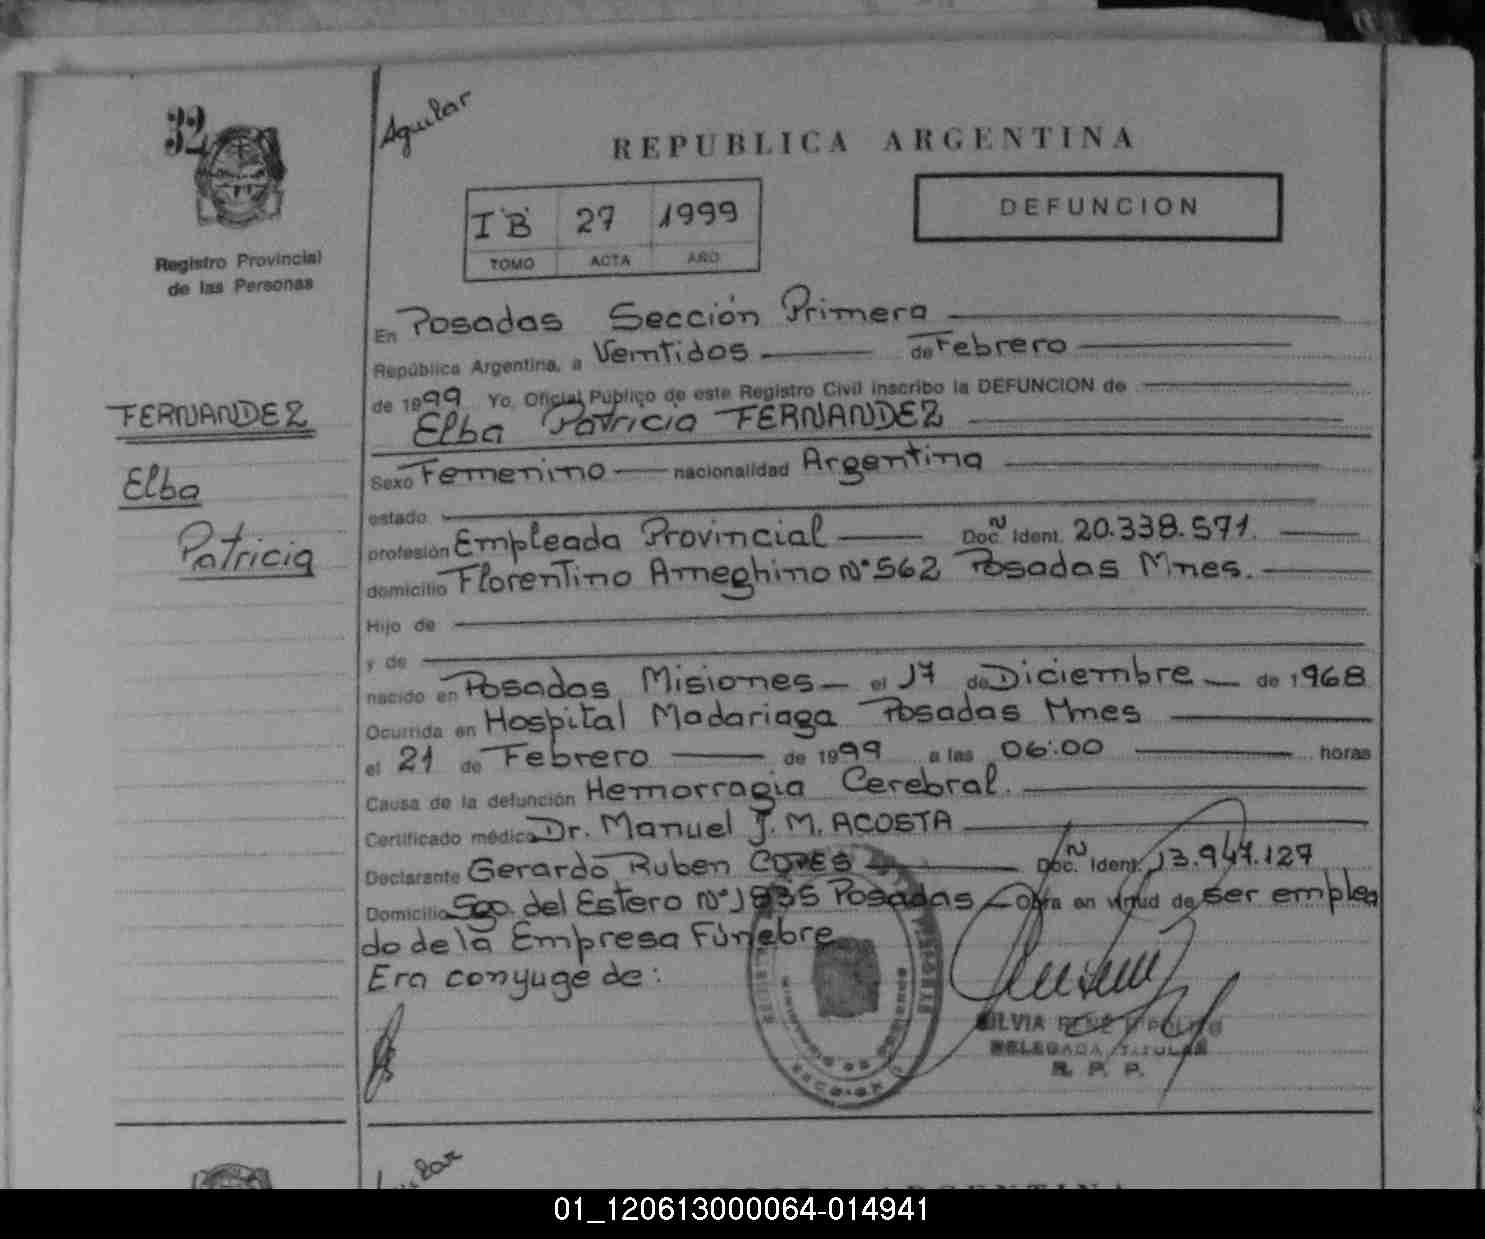 32
Registro Provincial
de las Personas
FERNANDEZ
Elba
Patricia
Aguilar
REPUBLICA ARGENTINA
I "B" 27 1999
TOMO ACTA AÑO
DEFUNCION
En Posadas Sección Primera
República Argentina, a Veintidos de Febrero
de 1999 Yo, Oficial Público de este Registro Civil inscribo la DEFUNCION de
Elba Patricia FERNANDEZ
Sexo Femenino nacionalidad Argentina
estado
profesión Empleada Provincial Doc. N Ident. 20.338.571.
domicilio Florentino Ameghino N° 562 Posadas Mnes.
Hijo de
y de
nacido en Posadas Misiones el 17 de Diciembre de 1968
Ocurrida en Hospital Madariaga Posadas Mnes
el 21 de Febrero de 1999 a las 06:00 horas
Causa de la defunción Hemorragia Cerebral.
Certificado médico Dr. Manuel J. M. ACOSTA
Declarante Gerardo Ruben COPES Doc. N Ident. 13.947.127
Domicilio Sgo. del Estero N° 1835 Posadas Obra en virtud de ser emplea
do de la Empresa Fúnebre
Era conyuge de:
SILVIA RENE HIPOLITO
DELEGADA TITULAR
R. P. P.
ARGENTINA
01_120613000064-014941